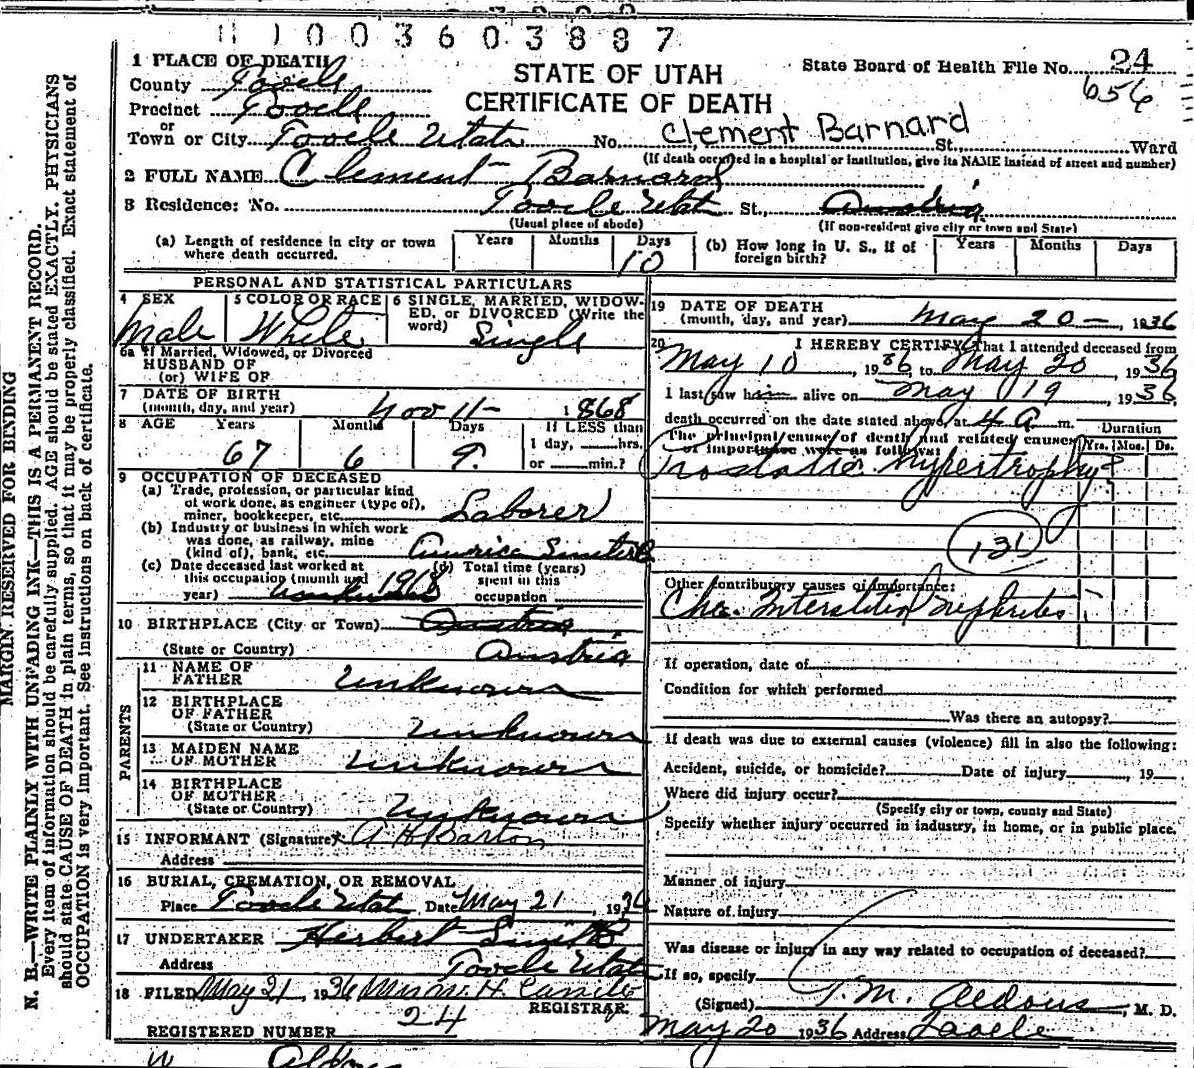 11003603887
1 PLACE OF DEATH
County Tooele
Precinct Tooele
or
Town or City Tooele Utah No. Clement Barnard St., Ward
(If death occurred in a hospital or institution, give its NAME instead of street and number)
STATE OF UTAH
CERTIFICATE OF DEATH
State Board of Health File No. 24
656
2 FULL NAME Clement Barnard
3 Residence: No. Tooele Utah St., Austria
(Usual place of abode) (If non-resident give city or town and State)
(a) Length of residence in city or town where death occurred. Years Months Days 10
(b) How long in U. S., if of foreign birth? Years Months Days
PERSONAL AND STATISTICAL PARTICULARS
4 SEX Male
5 COLOR OR RACE White
6 SINGLE, MARRIED, WIDOWED, or DIVORCED (Write the word) Single
6a If Married, Widowed, or Divorced
HUSBAND OF
(or) WIFE OF
7 DATE OF BIRTH
(month, day, and year) Nov 11- 1868
8 AGE Years 67 Months 6 Days 9 If LESS than
1 day, hrs.
or min.?
9 OCCUPATION OF DECEASED
(a) Trade, profession, or particular kind
of work done, as engineer (type of),
miner, bookkeeper, etc. Laborer
(b) Industry or business in which work
was done, as railway, mine
(kind of), bank, etc. America Smelter
(c) Date deceased last worked at
this occupation (month and
year) 1918
(d) Total time (years)
spent in this
occupation
10 BIRTHPLACE (City or Town) Austria
(State or Country) Austria
PARENTS
11 NAME OF
FATHER Unknown
12 BIRTHPLACE
OF FATHER
(State or Country) Unknown
13 MAIDEN NAME
OF MOTHER Unknown
14 BIRTHPLACE
OF MOTHER
(State or Country) Unknown
15 INFORMANT (Signature) x A H Barton
Address
16 BURIAL, CREMATION, OR REMOVAL
Place Tooele Utah Date May 21, 1936
17 UNDERTAKER Herbert Smith
Address Tooele Utah
18 FILED May 21 1936
REGISTRAR.
REGISTERED NUMBER 24
19 DATE OF DEATH
(month, day, and year) May 20-, 1936
20 I HEREBY CERTIFY, That I attended deceased from
May 10, 1936 to May 20, 1936
I last saw him alive on May 19, 1936,
death occurred on the date stated above, at 4 A m.
The principal cause of death and related causes
of importance were as follows:
Duration
Yrs. Mos. Ds.
Prostatic Hypertrophy ?
131
Other contributory causes of importance:
Chr. Interstitial nephritis
If operation, date of
Condition for which performed
Was there an autopsy?
If death was due to external causes (violence) fill in also the following:
Accident, suicide, or homicide? Date of injury , 19
Where did injury occur?
(Specify city or town, county and State)
Specify whether injury occurred in industry, in home, or in public place.
Manner of injury
Nature of injury
Was disease or injury in any way related to occupation of deceased?
If so, specify
(Signed) T. M. Aldous, M. D.
May 20 1936 Address Tooele
W Aldous
MARGIN RESERVED FOR BINDING
N. B.—WRITE PLAINLY WITH UNFADING INK—THIS IS A PERMANENT RECORD.
Every item of information should be carefully supplied. AGE should be stated EXACTLY. PHYSICIANS
should state CAUSE OF DEATH in plain terms, so that it may be properly classified. Exact statement of
OCCUPATION is very important. See instructions on back of certificate.